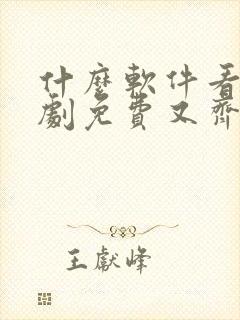 什麼軟件看
劇免費又齊
王獻峰